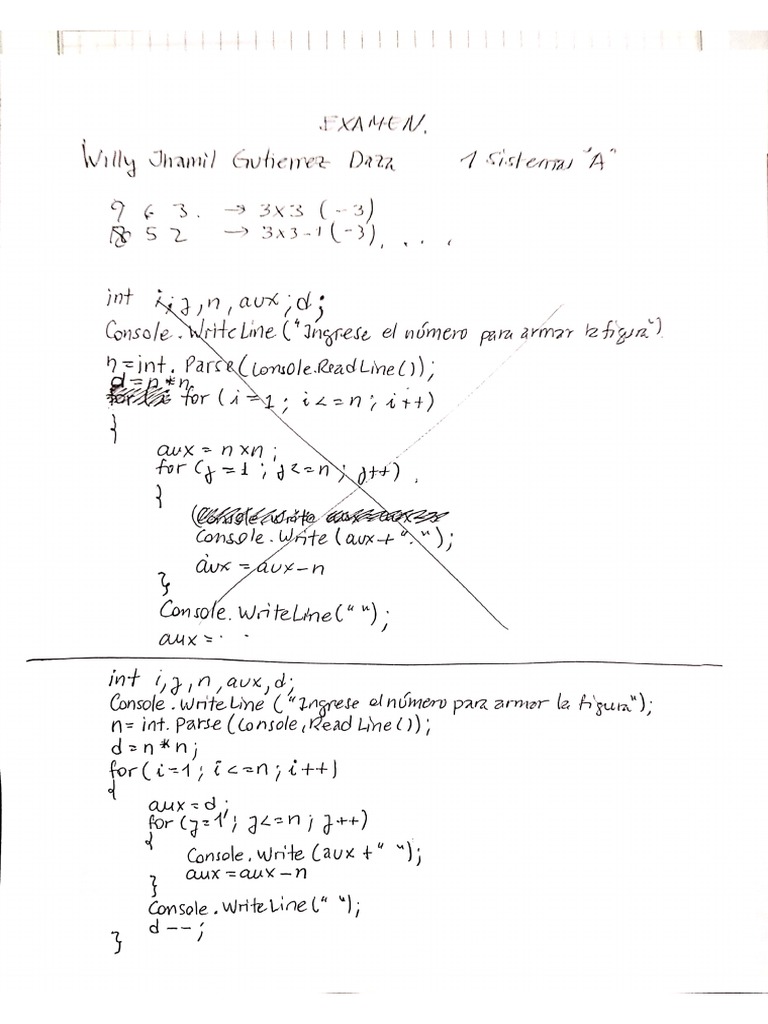 EXAMEN.
Willy Jhamil Gutierrez Daza 1 Sistemas "A"
9 6 3. → 3x3 (-3)
8 5 2 → 3x3-1(-3), . . .
int i, j, n, aux ; d;
Console.WriteLine("Ingrese el número para armar la figura")
n=int. Parse(Console.ReadLine());
d=n*n
for (i=1; i<=n; i++)
{
aux = n x n;
for (j=1; j<=n; j++)
{
Console.Write (aux+" ");
aux = aux-n
}
Console.WriteLine(" ");
aux = . .
int i, j, n, aux, d;
Console.WriteLine ("Ingrese el número para armar la figura");
n= int. Parse(Console.ReadLine());
d=n*n;
for(i=1; i<=n; i++)
{
aux=d;
for (j=1; j<=n; j++)
{
Console.Write (aux +" ");
aux=aux-n
}
Console.WriteLine(" ");
d--;
}